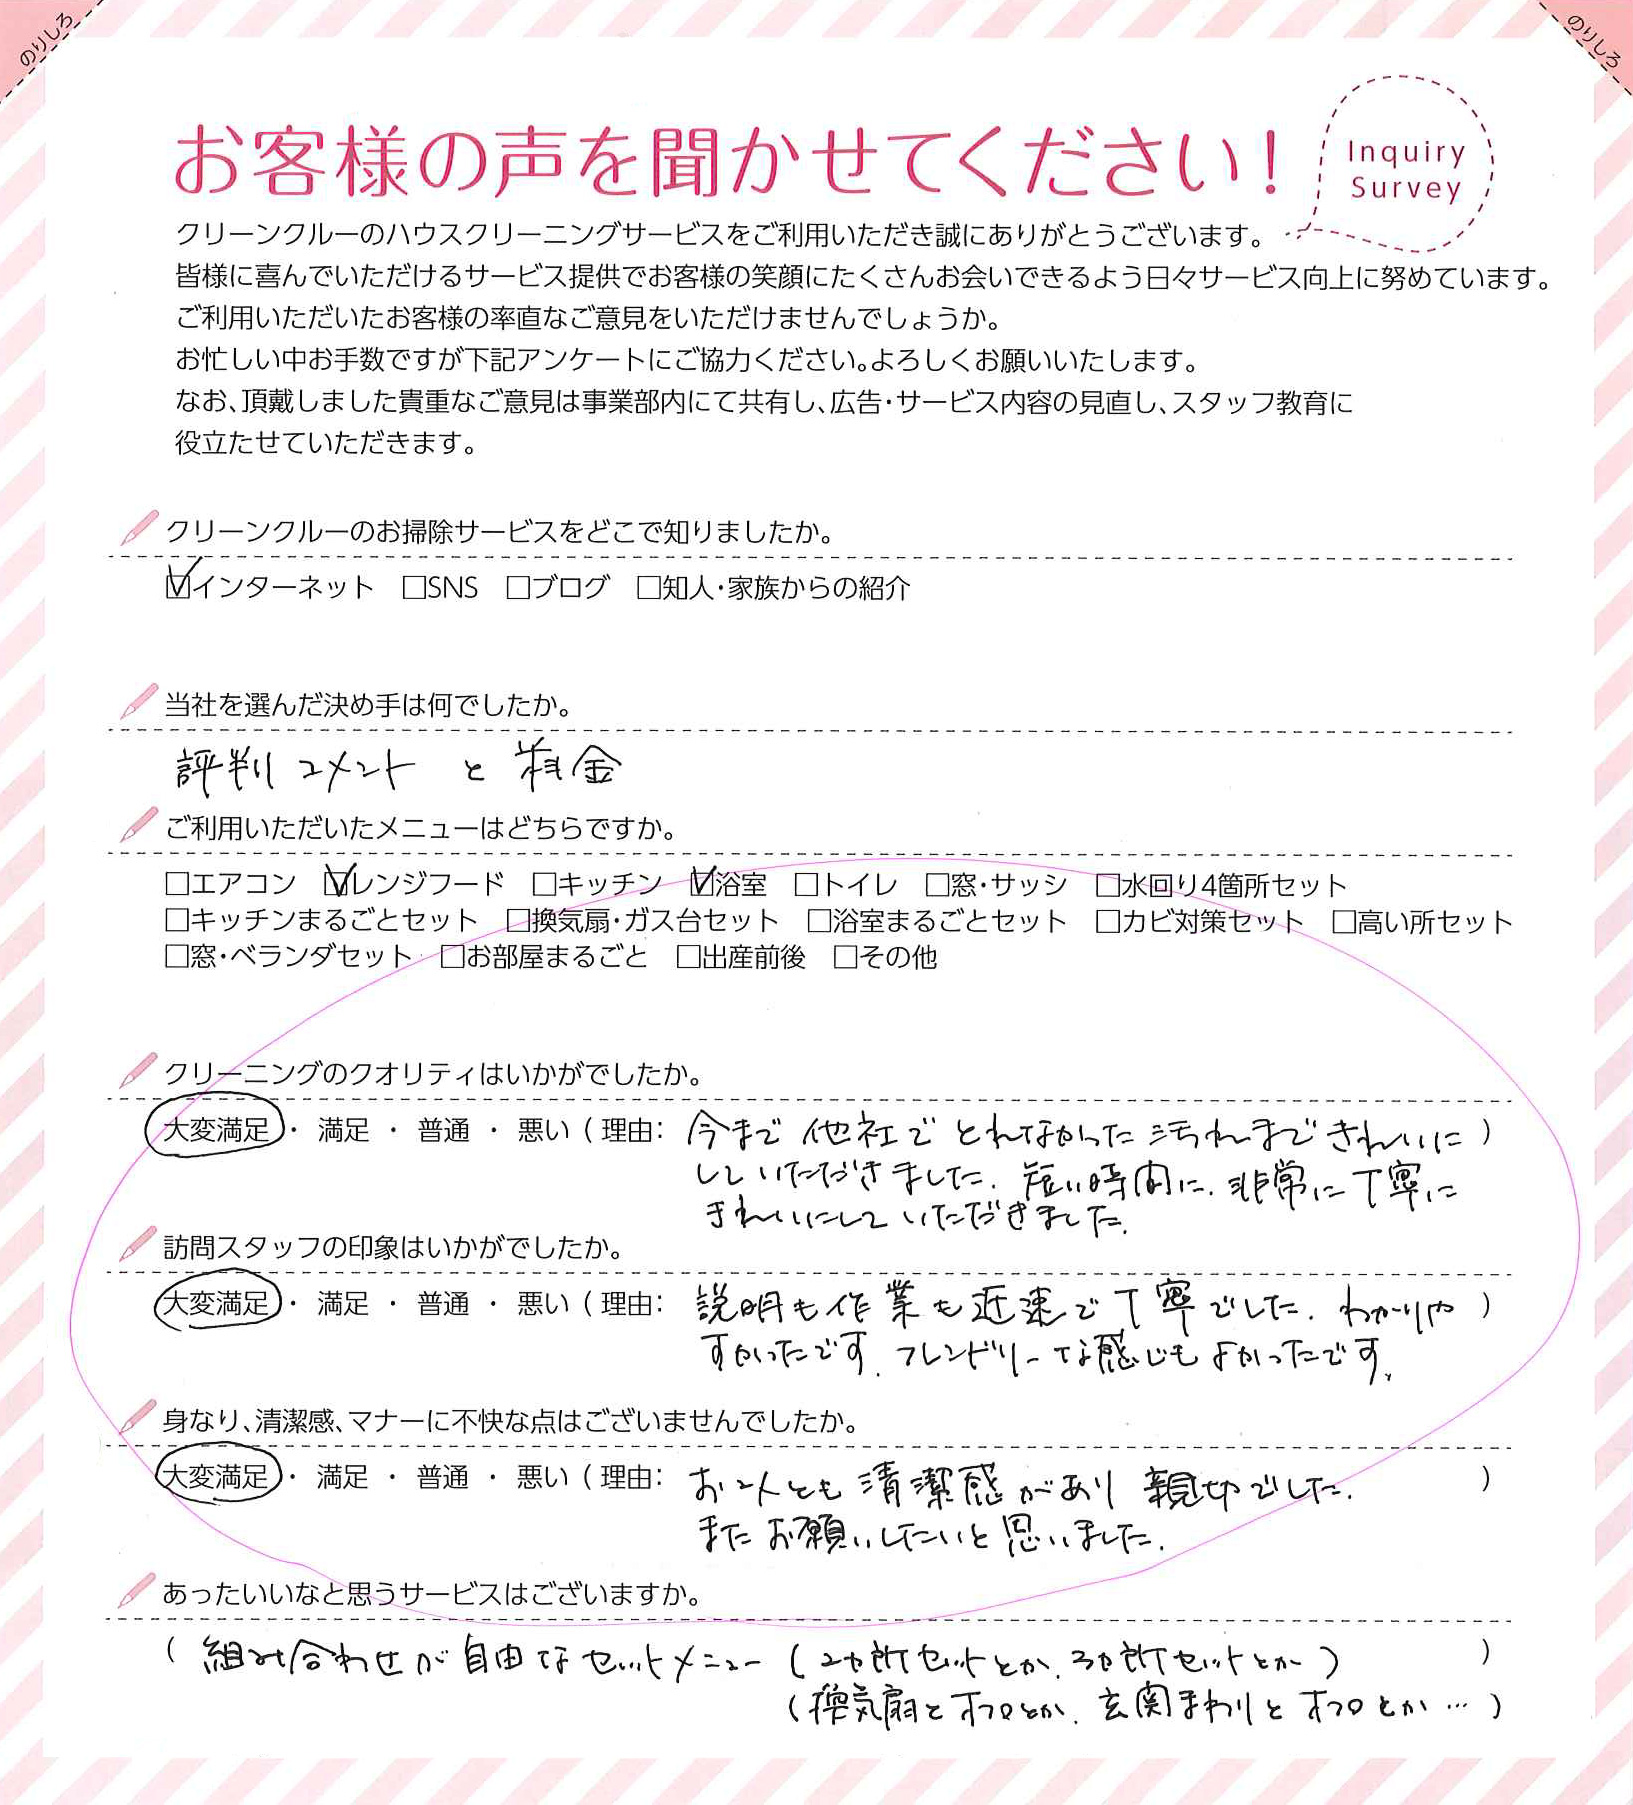 のりしろ
のりしろ
お客様の声を聞かせてください!
Inquiry
Survey
クリーンクルーのハウスクリーニングサービスをご利用いただき誠にありがとうございます。
皆様に喜んでいただけるサービス提供でお客様の笑顔にたくさんお会いできるよう日々サービス向上に努めています。
ご利用いただいたお客様の率直なご意見をいただけませんでしょうか。
お忙しい中お手数ですが下記アンケートにご協力ください。よろしくお願いいたします。
なお、頂戴しました貴重なご意見は事業部内にて共有し、広告・サービス内容の見直し、スタッフ教育に
役立たせていただきます。
クリーンクルーのお掃除サービスをどこで知りましたか。
☑インターネット □SNS □ブログ □知人・家族からの紹介
当社を選んだ決め手は何でしたか。
評判コメントと料金
ご利用いただいたメニューはどちらですか。
□エアコン ☑レンジフード □キッチン ☑浴室 □トイレ □窓・サッシ □水回り4箇所セット
□キッチンまるごとセット □換気扇・ガス台セット □浴室まるごとセット □カビ対策セット □高い所セット
□窓・ベランダセット □お部屋まるごと □出産前後 □その他
クリーニングのクオリティはいかがでしたか。
大変満足 ・ 満足 ・ 普通 ・ 悪い ( 理由: 今まで他社でとれなかった汚れまできれいに )
していただきました. 短い時間に. 非常に丁寧に
きれいにしていただきました.
訪問スタッフの印象はいかがでしたか。
大変満足 ・ 満足 ・ 普通 ・ 悪い ( 理由: 説明も作業も迅速で丁寧でした. わかりや )
すかったです. フレンドリーな感じもよかったです.
身なり、清潔感、マナーに不快な点はございませんでしたか。
大変満足 ・ 満足 ・ 普通 ・ 悪い ( 理由: お2人とも清潔感があり親切でした. )
またお願いしたいと思いました.
あったいいなと思うサービスはございますか。
( 組み合わせが自由なセットメニュー (2カ所セットとか. 3カ所セットとか) )
(換気扇とオフロとか. 玄関まわりとオフロとか…)